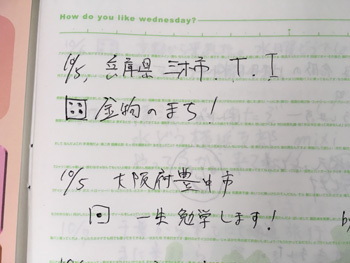 How do you like wednesday?
10/5, 兵庫県 三木市. T. I
金物のまち!
10/5 大阪府豊中市
一生勉学します!